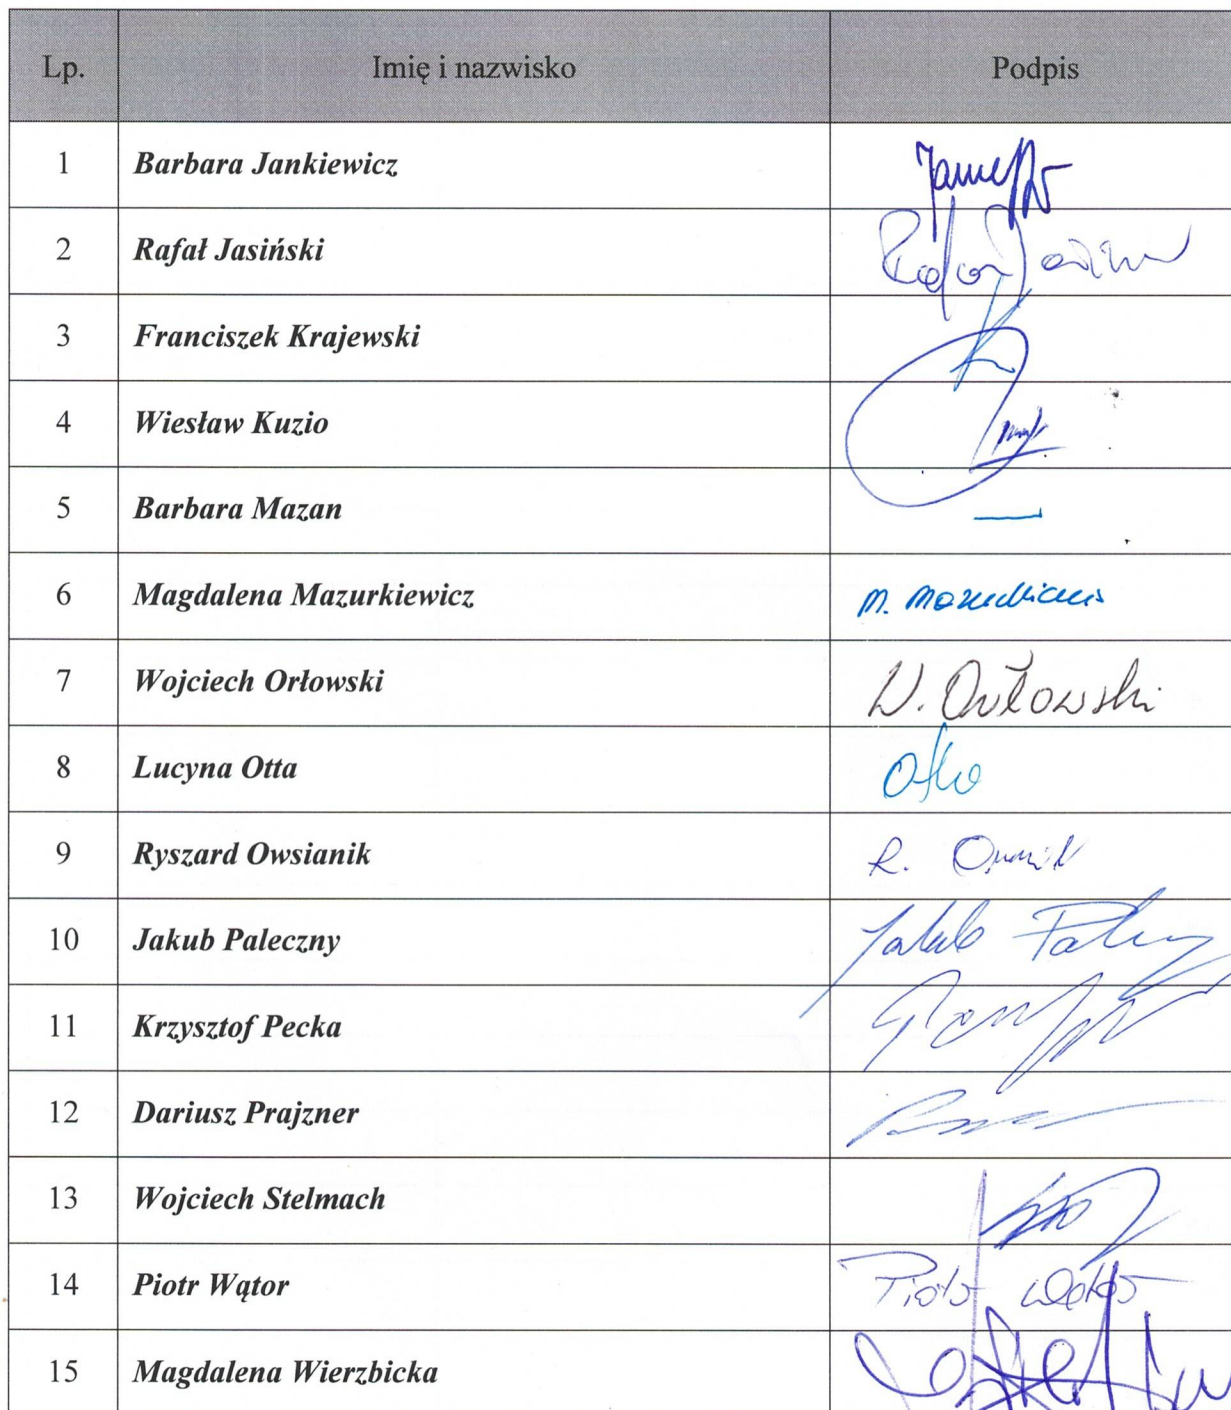 Lp. Imię i nazwisko Podpis
1 Barbara Jankiewicz
2 Rafał Jasiński
3 Franciszek Krajewski
4 Wiesław Kuzio
5 Barbara Mazan
6 Magdalena Mazurkiewicz M. Mazurkiewicz
7 Wojciech Orłowski W. Orłowski
8 Lucyna Otta Otta
9 Ryszard Owsianik R.
10 Jakub Paleczny Jakub
11 Krzysztof Pecka
12 Dariusz Prajzner
13 Wojciech Stelmach
14 Piotr Wątor Piotr Wątor
15 Magdalena Wierzbicka